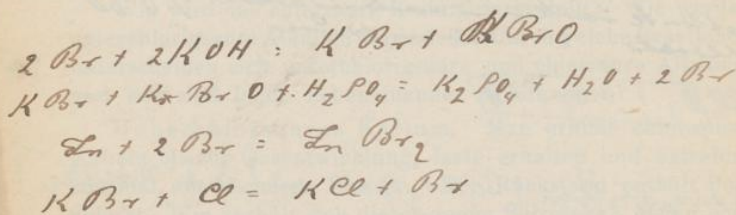 2 Br + 2KOH = K Br + K BrO
K Br + K Br O + H₂SO₄ = K₂SO₄ + H₂O + 2 Br
Zn + 2 Br = Zn Br₂
K Br + Cl = KCl + Br